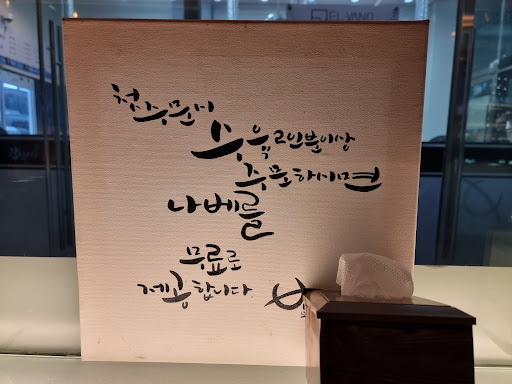 첫주문시
수육 2인분이상
주문하시면
나베를
무료로
제공합니다